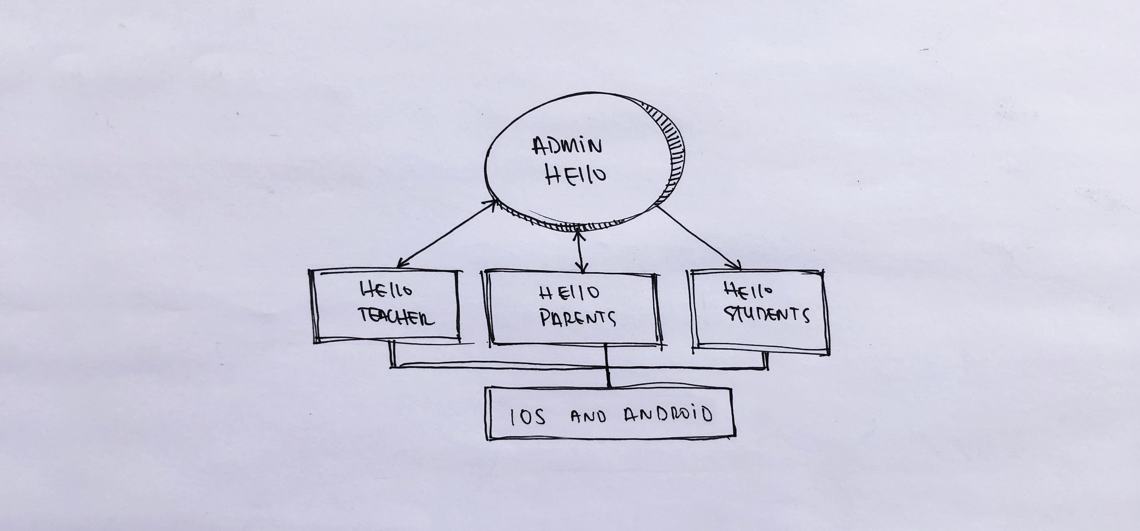 ADMIN
HELLO
HELLO
TEACHER
HELLO
PARENTS
HELLO
STUDENTS
IOS AND ANDROID